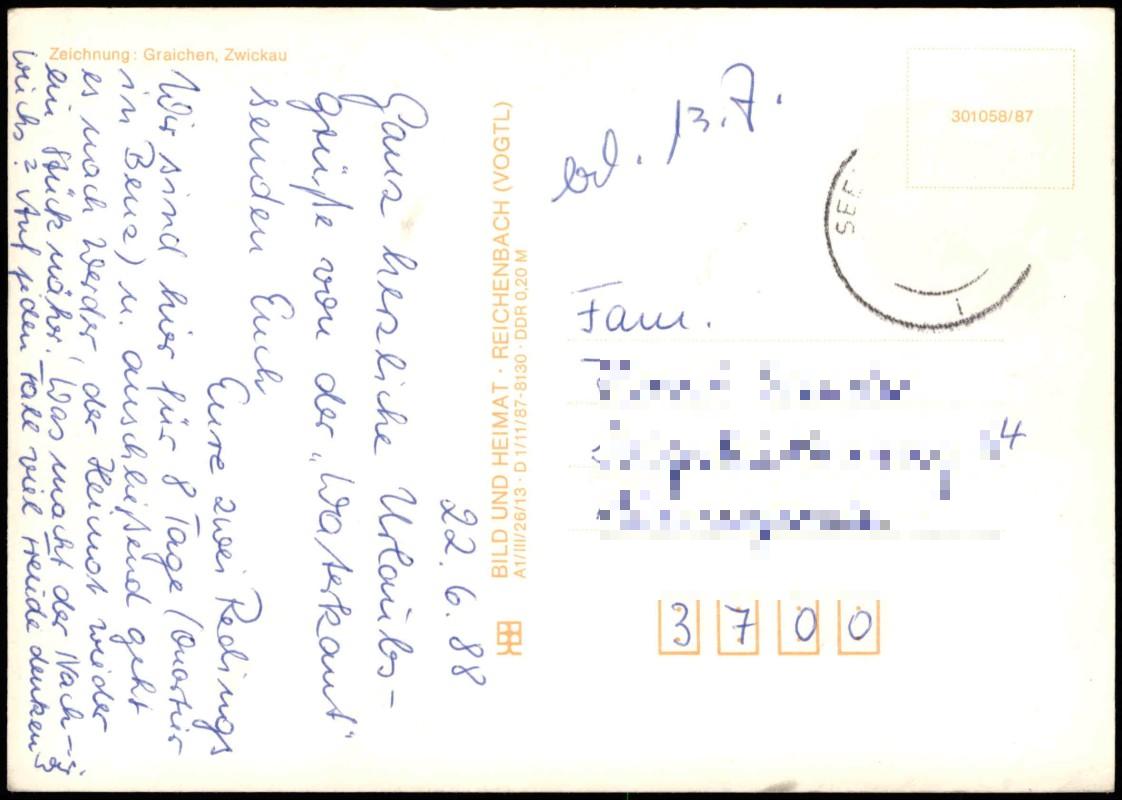 Zeichnung: Graichen, Zwickau
22.6.88
Ganz herzliche Urlaubs-
grüße von der „Waterkant"
senden Euch
Eure zwei Redings
Wir sind hier für 8 Tage (Quartier
in Benz) u. anschließend geht
es nach Werder der Heimat wieder
ein Stück näher! Was macht der Nach-
wuchs? Auf jeden Fall viel Freude denken
BILD UND HEIMAT · REICHENBACH (VOGTL)
A1/III/26/13 · D 1/11/87-8130 · DDR 0,20 M
301058/87
SEE
i
13.7.
Fam.
4
3 7 0 0